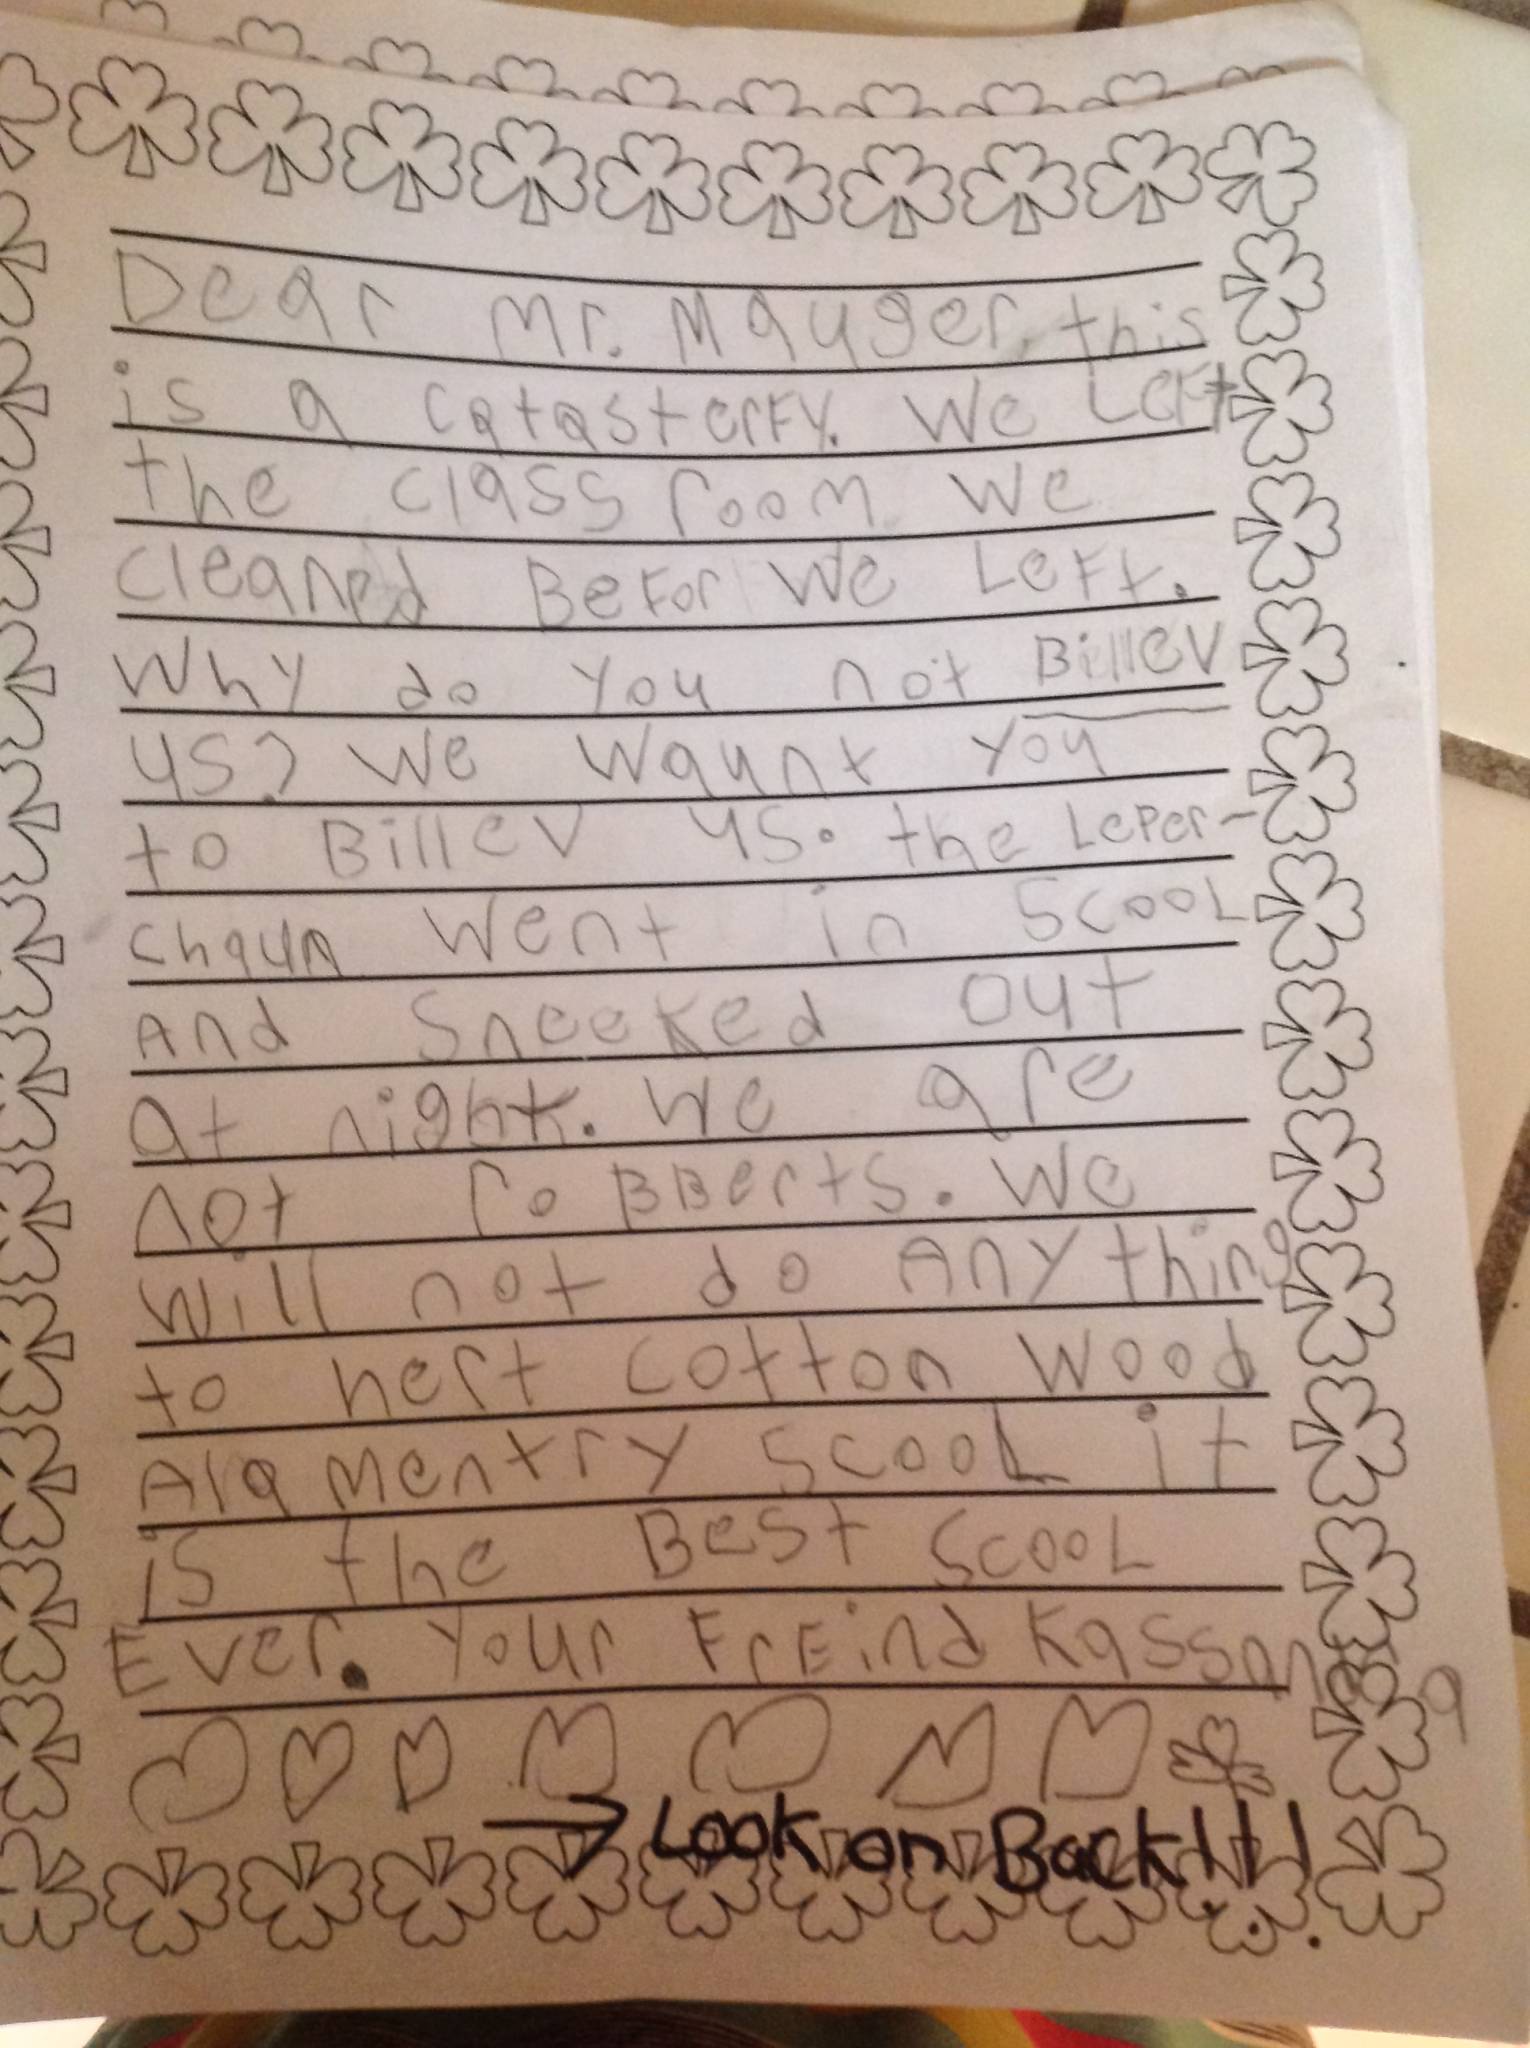 Dear Mr. Mauger, this
is a catasterfy. We Left
the class room we
cleaned BeFor We LeFt.
Why do you not Billev
us? We waunt you
to Billev us. the Leper-
chaun went in ScooL
And Sneeked out
at night. We are
not roBBerts. We
will not do Anything
to hert cotton wood
Alamentry ScooL it
is the Best ScooL
Ever. Your FrEind Kassandra
→ Look on Back!!!